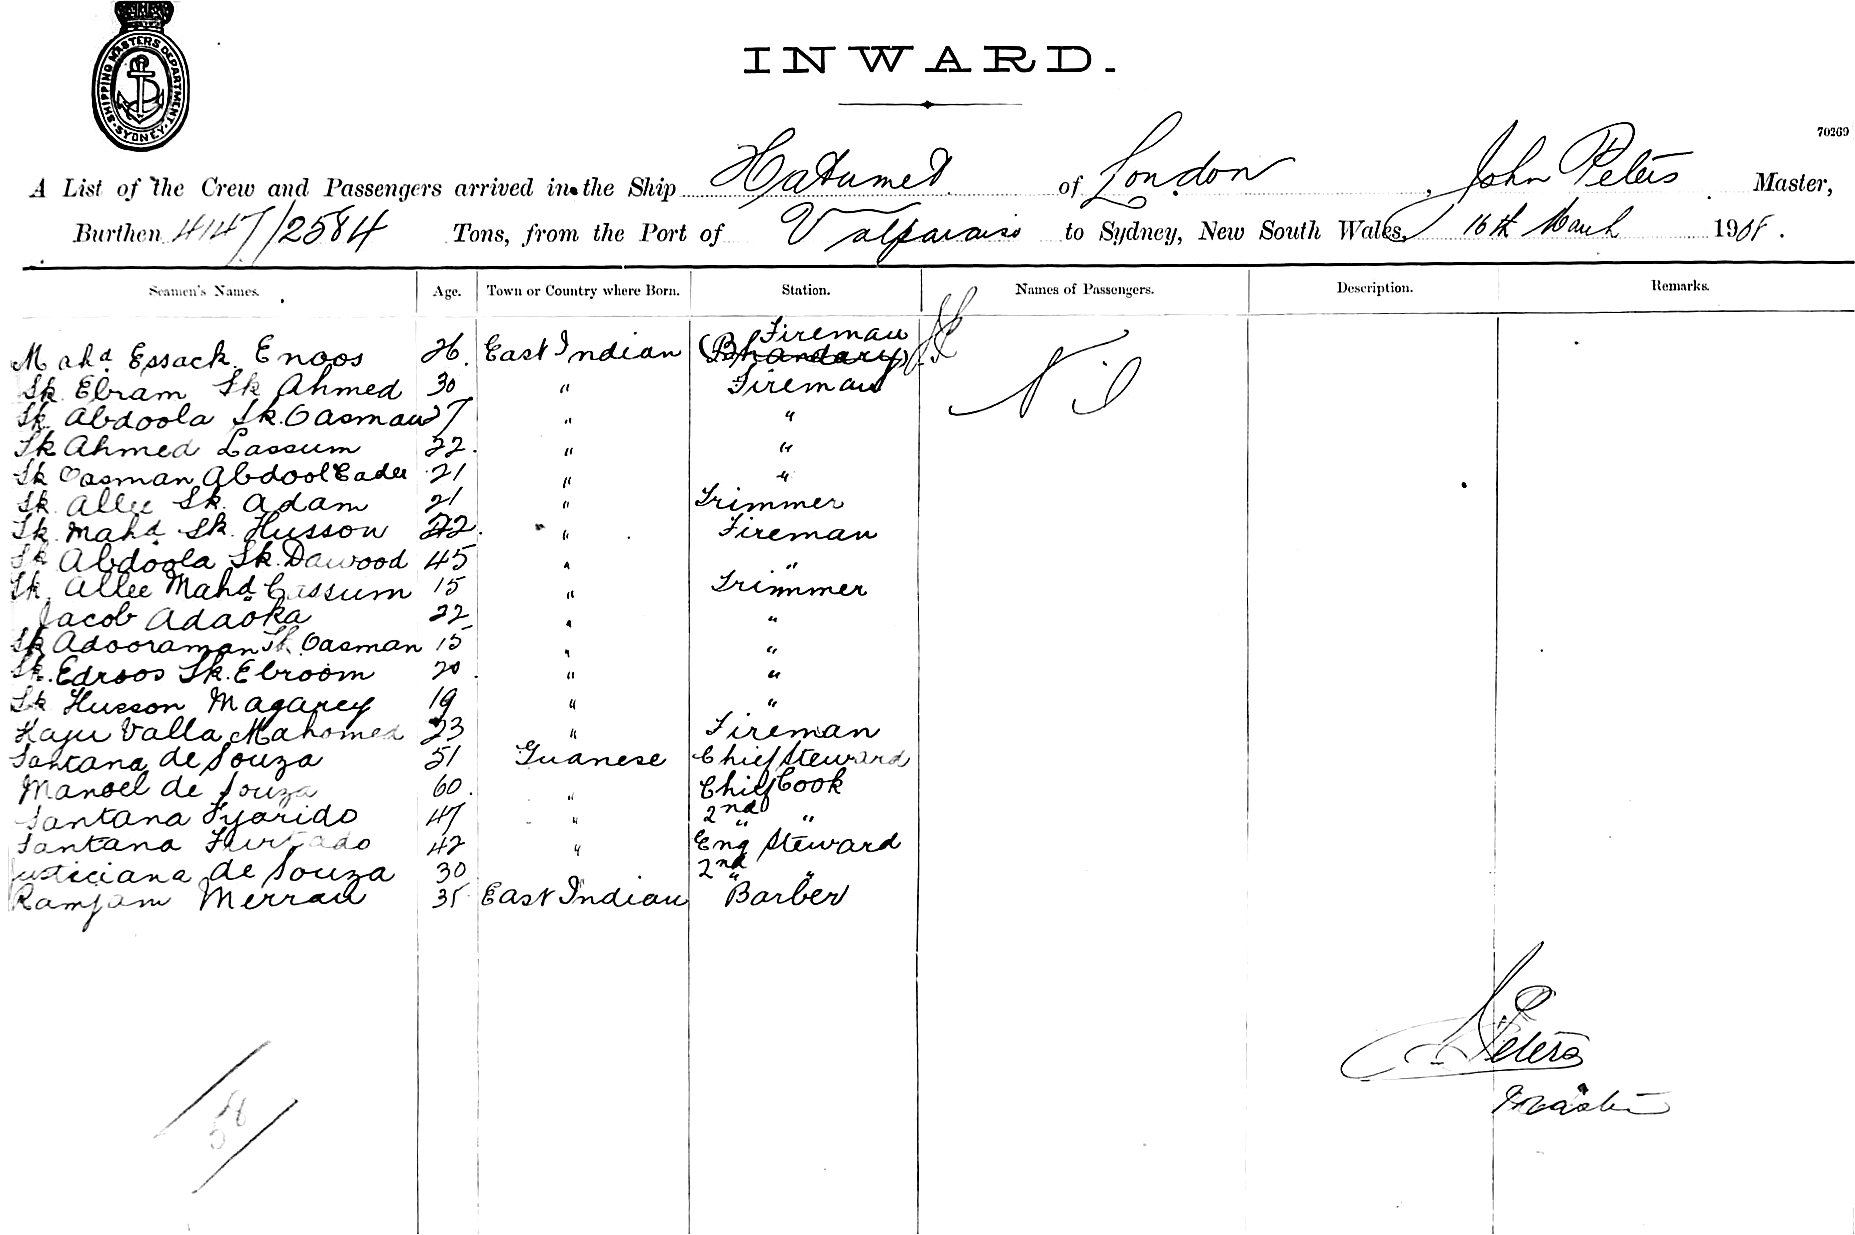 SHIPPING MASTERS DEPARTMENT
SYDNEY
INWARD.
70269
A List of the Crew and Passengers arrived in the Ship Hatumet of London, John Peters Master,
Burthen 4147/2584 Tons, from the Port of Valparaiso to Sydney, New South Wales, 16th March 1908.
Seamen's Names. Age. Town or Country where Born. Station. Names of Passengers. Description. Remarks.
Fireman
Mahd. Essack Enoos 26 East Indian (Bhandary) Nil
Sk. Ebram Sk Ahmed 30 " Fireman
Sk. Abdoola Sk. Oasman 27 " "
Sk Ahmed Cassum 22. " "
Sk Oasman Abdool Cader 21 " "
Sk. Allee Sk. Adam 21 " Trimmer
Sk. Mahd. Sk. Husson 22. " Fireman
Sk Abdoola Sk. Dawood 45 " "
Sk. Allee Mahd Cassum 15 " Trimmer
Jacob Adaoka 22 " "
Sk Adooraman Sk. Oasman 15 " "
Sk. Edroos Sk. Ebroom 20 " "
Sk Husson Magarey 19 " "
Kaju Valla Mahomed 23 " Fireman
Santana de Souza 51 Guanese Chief Steward
Manoel de Souza 60. " Chief Cook
Santana 47 " 2nd " "
Santana Furtado 42 " Eng Steward
Justiciana de Souza 30 " 2nd " "
Ramjam Merran 35 East Indian Barber
J Peters
Master
58